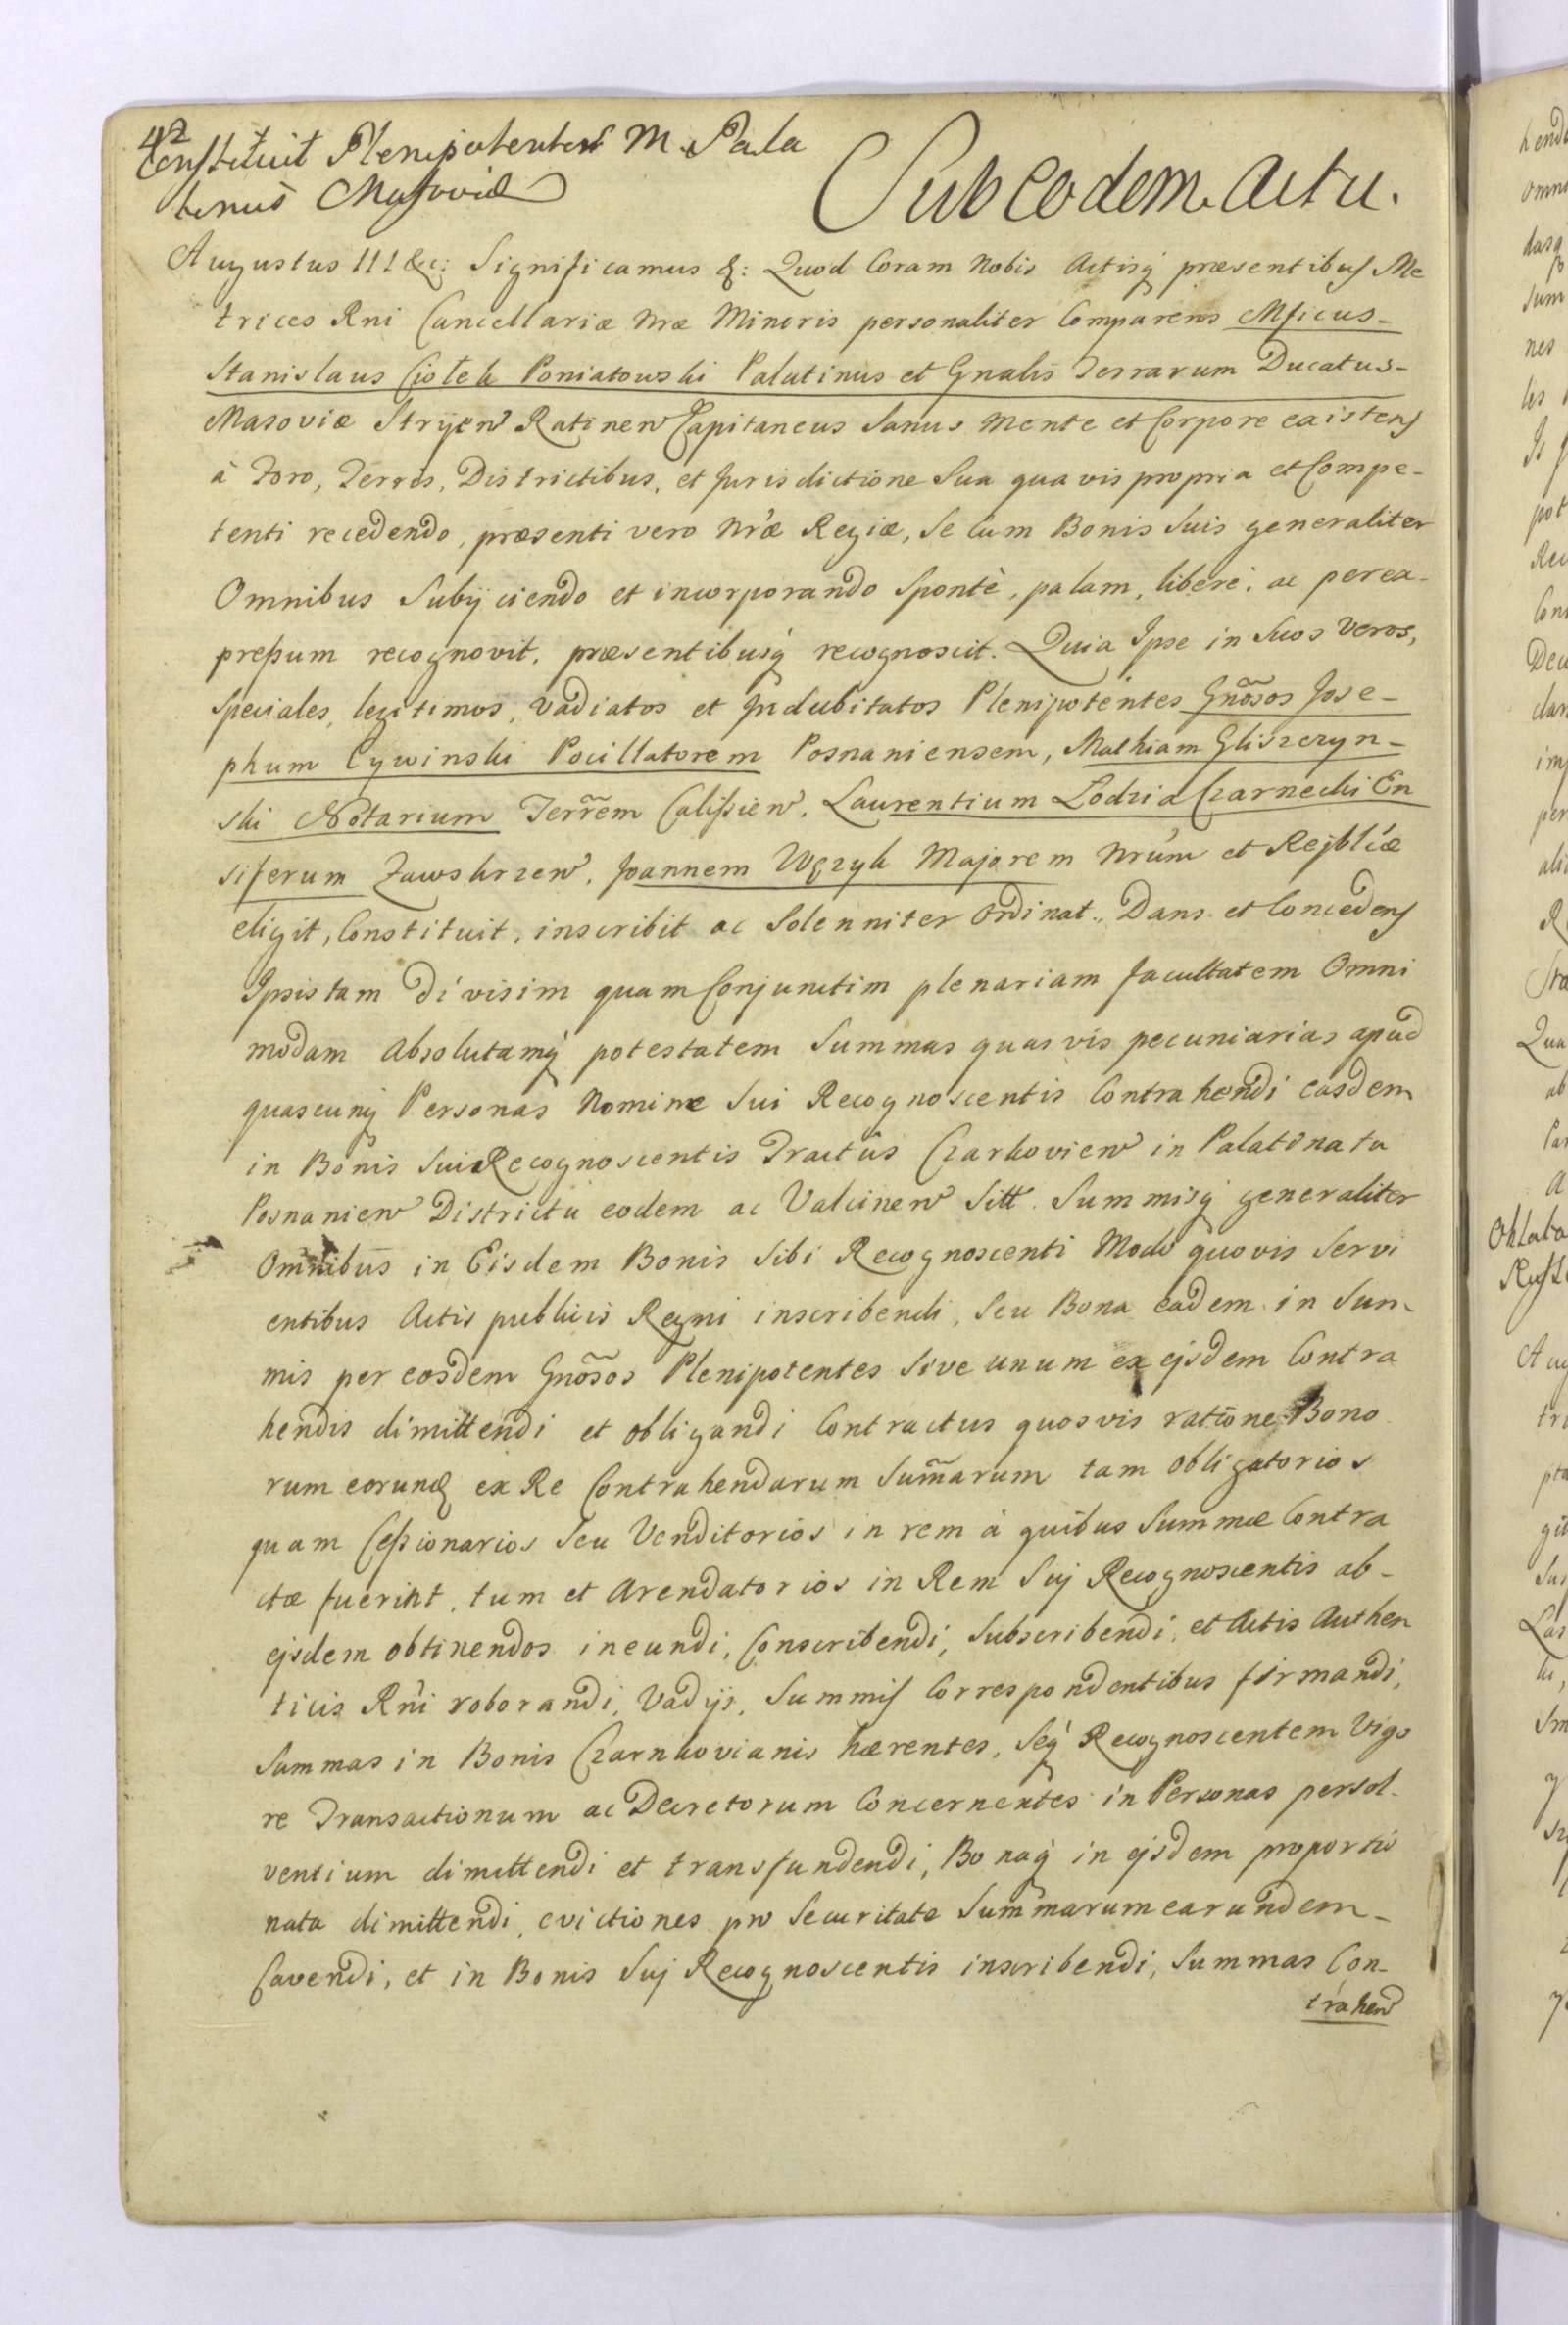 42
Constituit Plenipotentes M. Pala
tinus Masoviæ
Sub eodem Actu.
Augustus III &c: Significamus &: Quod Coram Nobis Actisq́ præsentibus Me
trices Rni Cancellariæ Nræ Minoris personaliter Comparens Mficus-
Stanislaus Ciołek Poniatowski Palatinus et Gnalis Terrarum Ducatus-
Masoviæ Stryien Ratinen Capitaneus Sanus Mente et Corpore existens
à Foro, Terris, Districtibus, et Jurisdictione Sua quavis propria et Compe-
tenti recedendo, præsenti vero Nræ Regiæ, Se Cum Bonis Suis generaliter
Omnibus Subijciendo et incorporando Spontè, palam, liberè, ac perex-
preßum recognovit, præsentibusq́ recognoscit. Quia Ipse in Suos Veros,
Speciales, legitimos, Vadiatos et Indubitatos Plenipotentes Gnõsos Jose-
phum Cywinski Pocillatorem Posnaniensem, Mathiam Gliszczyn-
ski Notarium Terrẽm Calißien, Laurentium Lodzia Czarnecki En
siferum Zawskrzen, Joannem Węzyk Majorem Nrúm et Rejblicæ
eligit, Constituit, inscribit ac Solenniter Ordinat., Dans et Concedens
Ipsis tam Divisim quam Conjunctim plenariam facultatem Omni
modam Absolutamq́ potestatem Summas quasvis pecuniarias apud
quascunq́ Personas Nomine Sui Recognoscentis Contrahendi easdem
in Bonis Sui Recognoscentis Tractûs Czarkovien in Palatinatu
Posnanien Districtu eodem ac Valcinen Sitt. Summisq́ generaliter
Omnibus in Eisdem Bonis Sibi Recognoscenti Modo quovis Servi
entibus Actis publicis Regni inscribendi, Seu Bona eadem in Sum
mis per eosdem Gnõsos Plenipotentes Sive unum ex ejsdem Contra
hendis dimittendi et obligandi Contractus quosvis ratione Bono
rum eorund ex Re Contrahendarum Sum̃arum tam Obligatorios
quam Ceßionarios Seu Venditorios in rem à quibus Summæ Contra
ctæ fuerint, tum et Arendatorios in Rem Suj Recognoscentis ab-
ejsdem obtinendos ineundi, Conscribendi, Subscribendi, et Actis Authen
ticis Rńi roborandi, Vadijs, Summis Correspondentibus firmandi,
Summas in Bonis Czarnkovianis hærentes, Seq́ Recognoscentem Vigo
re Transactionum ac Decretorum Concernentes in Personas persol-
ventium dimittendi et transfundendi, Bonaq́ in ejsdem proportio
nata dimittendi, evictiones pro Securitate Summarum earundem-
Cavendi, et in Bonis Suj Recognoscentis inscribendi, Summas Con-
trahen